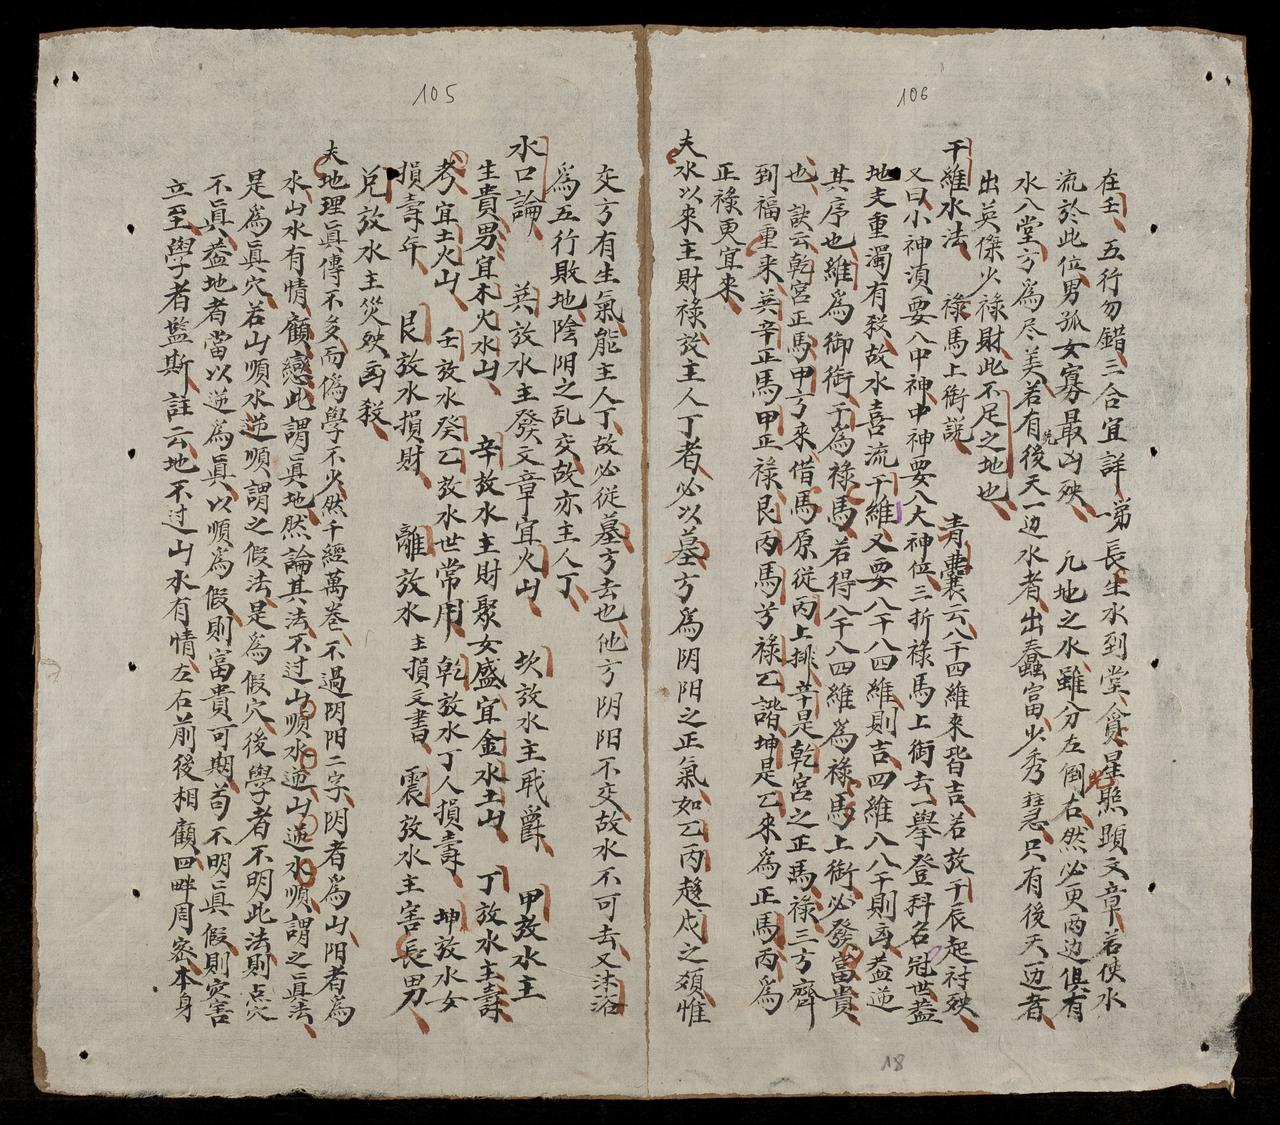 106
在壬五行勿錯三合宜詳 第長生水到堂貪星照顯文章若俠水
流於此位男孤女寡最凶殃 凡地之水雖分左倒右然必更两边俱有
水八堂方為尽美若有先後天一边水者出蠢富少秀慧只有後天一边者
出英傑少禄財此不足之地也
干維水法 禄馬上街説 青囊云八干四維來皆吉若放干辰起祔殃
又曰小神湏要八中神中神要八大神位三折禄馬上街去一舉登科名冠世盖
地支重濁有殺故水喜流干維又要八干八四維則吉四維八八干則凶盖逆
其序也維為御街干為禄馬若得八干八四維為禄馬上街必發富貴
也 訣云乾宮正馬甲方來借馬原従丙上排辛是乾宮之正馬禄三方齊
到福重来巽辛正馬甲正禄艮丙馬兮禄乙諧坤是乙來為正馬丙為
正禄更宜来
夫水以來主財禄放主人丁者必以墓方為阴阳之正氣如乙丙趍戍之類惟
105
交方有生氣能主人丁故必從墓方去也他方阴阳不交故水不可去又沐浴
為五行敗地陰阳之乱交故亦主人丁
水口論 巽放水主發文章宜火山 坎放水主戝爵 甲放水主
生貴男宜木火水山 辛放水主財聚女盛宜金水土山 丁放水主壽
考宜土火山 壬放水癸乙放水世常用 乾放水丁人損壽 坤放水女
損壽年 艮放水損財 離放水主損文書 震放水主害長男
兌放水主災殃凶殺
夫地理眞傳不多而僞學不少然千經萬卷不過阴阳二字阴者為山阳者為
水山水有情顧戀此謂眞地然論其法不过山順水逆山逆水順謂之眞法
是為眞穴若山順水逆順謂之假法是為假穴後學者不明此法則点穴
不眞葢地者當以逆為眞以順為假則富貴可期苟不明眞假則灾害
立至學者監斯註云地不过山水有情左右前後相顧四畔周密本身
18